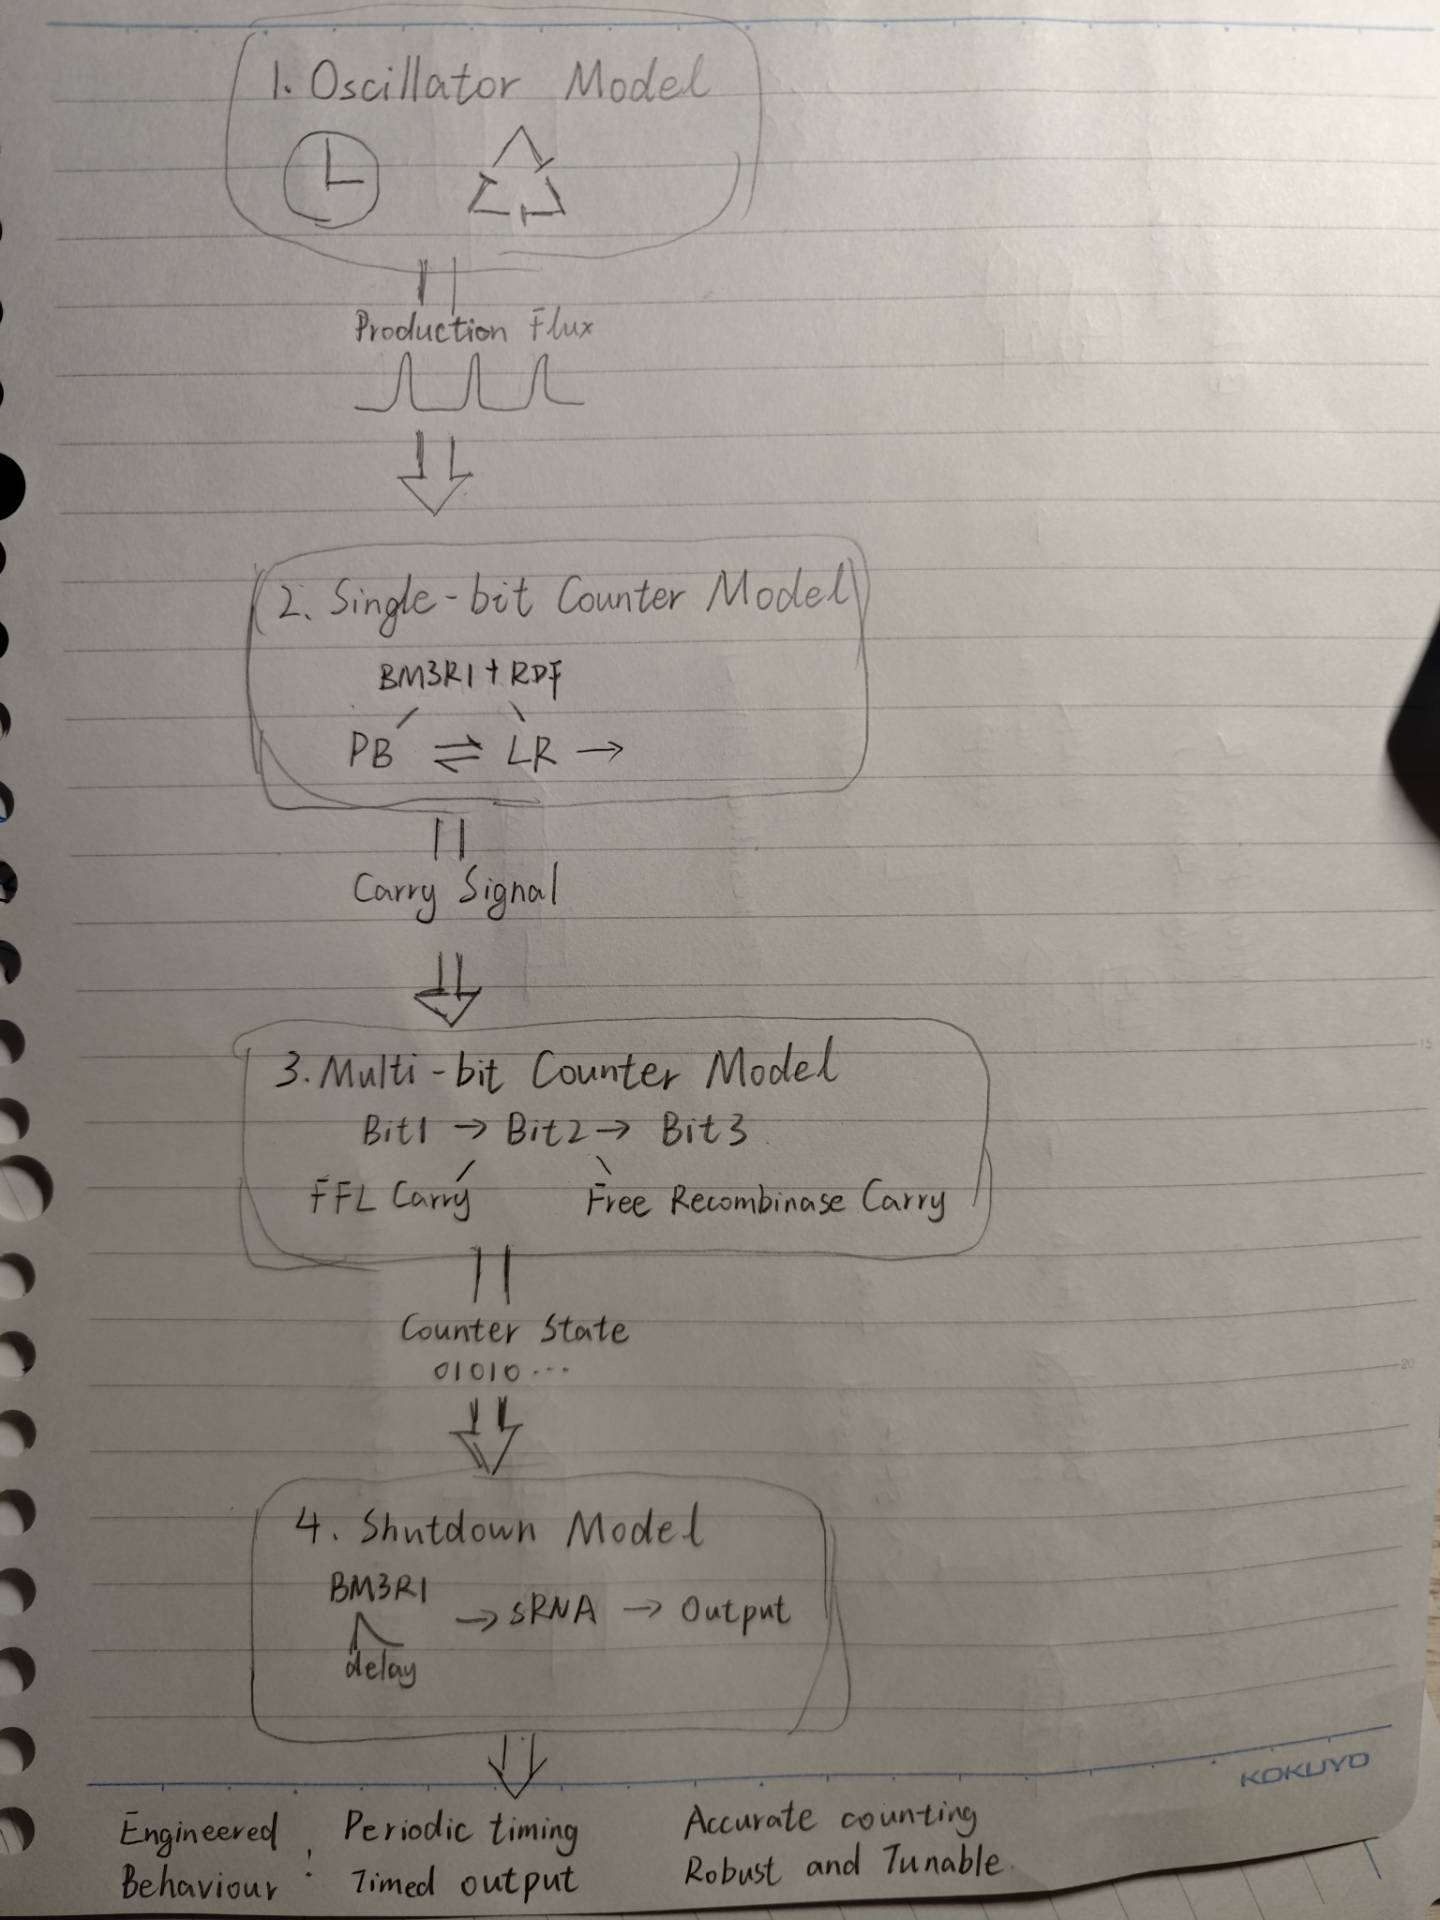 1. Oscillator Model
Production Flux
2. Single-bit Counter Model
BM3R1 + RDF
PB ⇌ LR →
Carry Signal
3. Multi-bit Counter Model
Bit1 → Bit2 → Bit3
FFL Carry Free Recombinase Carry
Counter State
01010...
4. Shutdown Model
BM3R1
→ sRNA → Output
delay
KOKUYO
Engineered Periodic timing Accurate counting
Behaviour : Timed output Robust and Tunable.
15
20